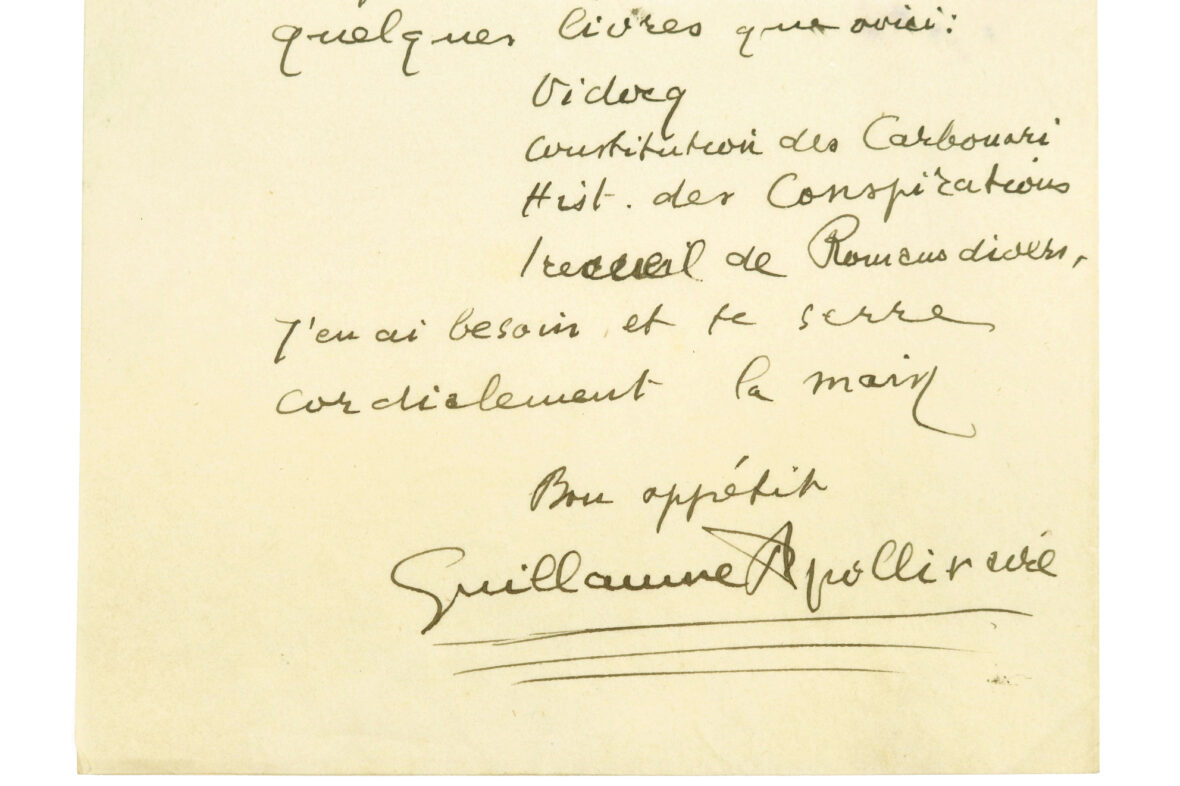 quelques livres que voici:
Vidocq
Constitution des Carbonari
Hist. des Conspirations
1 recueil de Romans divers,
J'en ai besoin et te serre
cordialement la main
Bon appétit
Guillaume Apollinaire